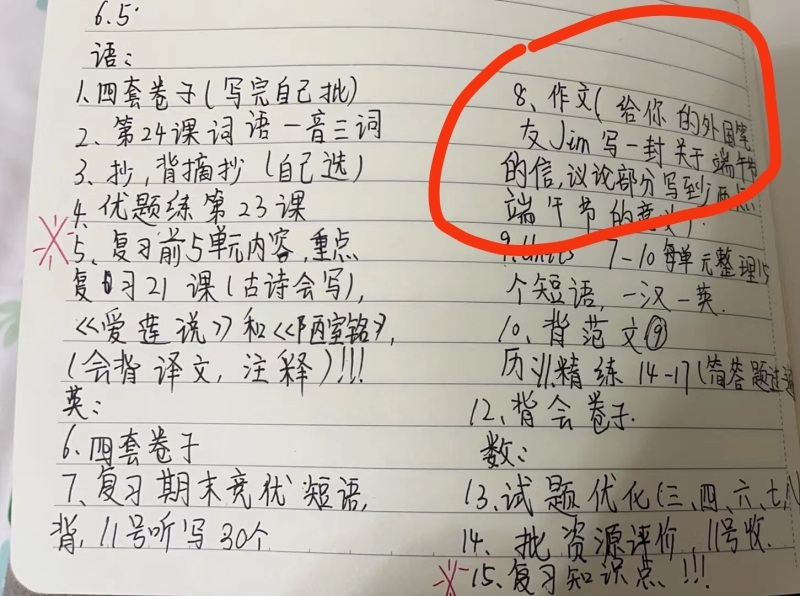 6.5
语：
1、四套卷子（写完自己批）
2、第24课词语一音三词
3、抄，背摘抄（自己选）
4、优题练第23课
5、复习前5单元内容，重点
复习21课（古诗会写），
《爱莲说》和《陋室铭》，
（会背译文，注释）!!!
英：
6、四套卷子
7、复习期末竞优短语，
背，11号听写30个
8、作文（给你的外国笔
友Jim写一封关于端午节
的信，议论部分写到少两点
端午节的意义）.
9、Units 7-10每单元整理15
个短语，一汉一英.
10、背范文⑨
历 精练14-17（简答题
12、背会卷子.
数：
13、试题优化（三、四、六、七、八
14、批资源评价，11号收.
15、复习知识点!!!